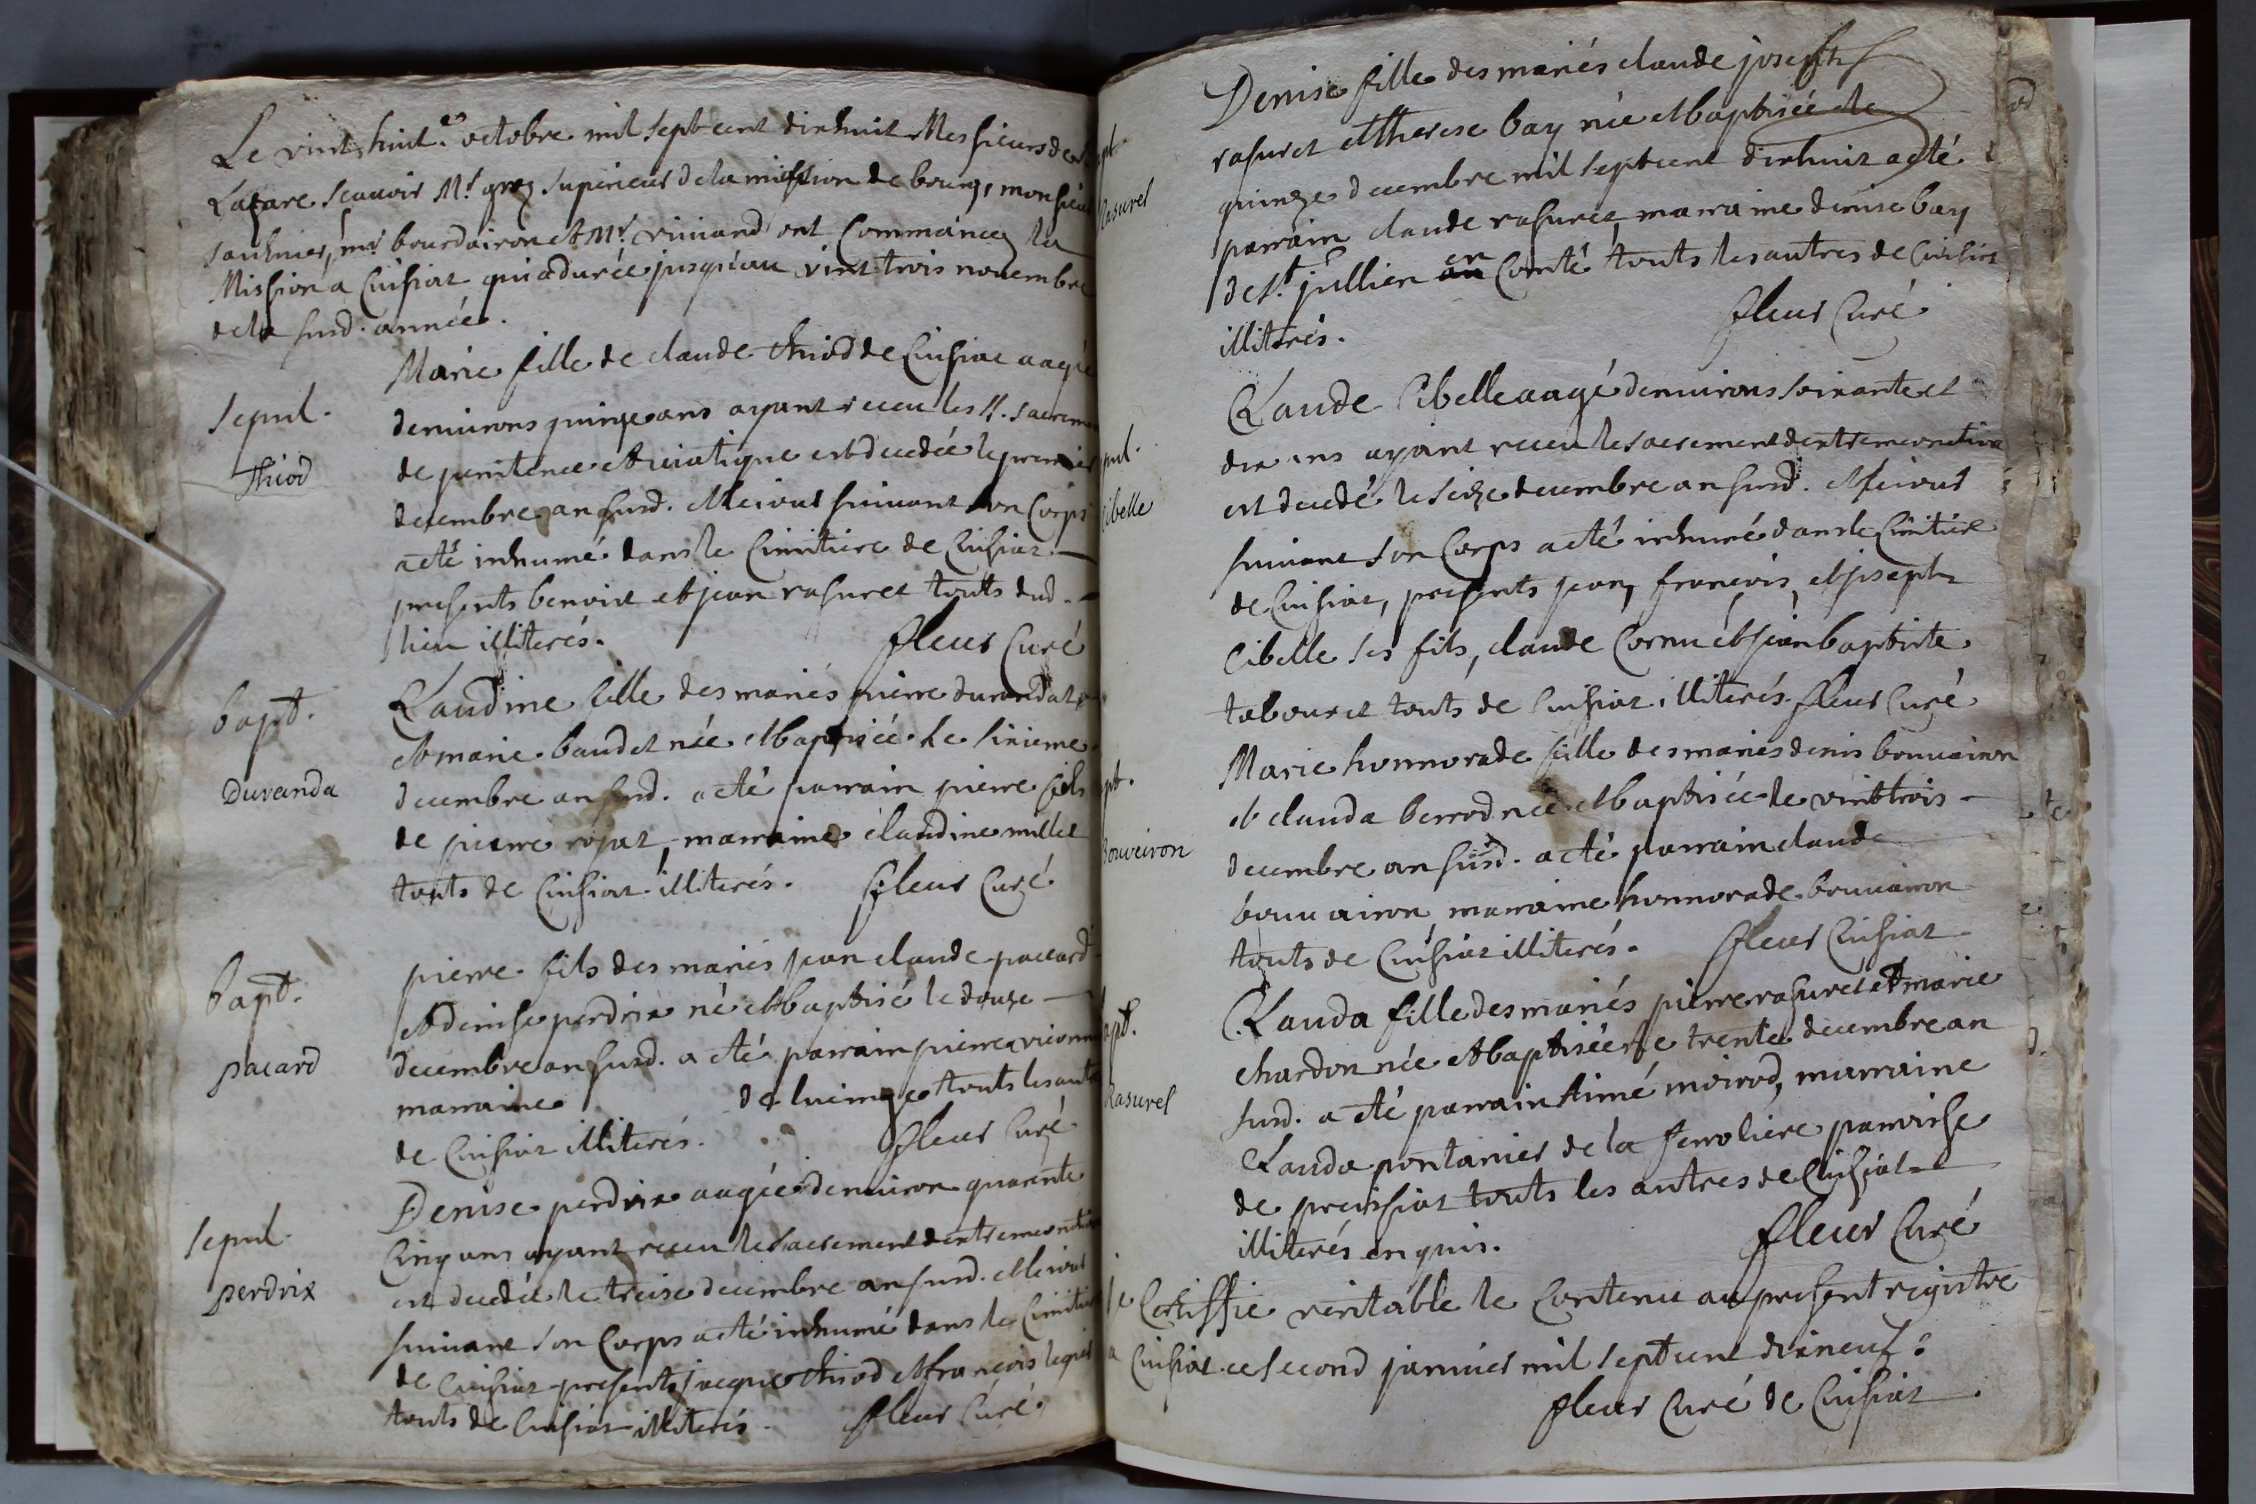 Le vint huit.e octobre mil sept cent dixhuit Messieurs de st
Lazare scauoir Mr. gros superieur de la mission de bourg, monsieur
saulnier, mr bourdairon et Mr. viuiand ont commancez la
Mission a Cuisiat qui a durée jusqu'au vint trois nouembre
de la susd. année.
sepul.
Thiod
Marie fille de claude thiod de Cuisiat aagée
denuirons quinze ans ayant receu les SS. sacremen
de penitence et uiatique est decedée le premier
decembre an susd. et le iour suiuant son Corps
a eté inhumé dans le Cimitiere de Cuisiat
presents benoit et jean rasurel touts dud.
lieu illiterés. fleur Curé
bapt.
Duranda
Claudine fille des mariés pierre durandat
et marie baudet née et baptisée le sixieme
decembre an susd. a eté parrain pierre fils
de pierre rojat, marraine claudine millet
touts de Cuisiat illiterés. fleur Curé
bapt.
pacard
pierre fils des mariés jean claude paccard
et denise perdrix né et baptisé le douze
decembre an susd. a eté parrain pierre vionn
marraine de lueinge touts les autr
de Cuisiat illiterés. fleur Curé
sepul.
perdrix
Denise perdrix aagée denuiron quarente
Cinq ans ayant receu le sacrement d'extremeonction
est decedée le treise decembre an susd. et le iour
suiuant son Corps a eté inhumé dans le Cimitiere
de Cuisiat presents jacque thiod et francois
touts de Cuisiat illiterés. fleur Curé.
pt.
Rasurel
Denise fille des mariés claude joseph
rasurel et therese bay née et baptisée le
quinze decembre mil sept cent dixhuit a eté
parrain claude rasurel, marraine denise bay
de st. jullien en Comté touts les autres de Cuisiat
illiterés. fleur Curé
pul.
Cibelle
Claude Cibelle aagé denuirons soixante et
dix ans ayant receu le sacrement dextremeonction
est decedé le seize decembre an susd. et le iour
suiuant son Corps a eté inhumé dans le Cimitiere
de Cuisiat, presents jean, francois, et joseph
Cibelle ses fils, claude Cornu et jean baptiste
tabouret touts de Cuisiat illiterés. fleur Curé
pt.
Bouveiron
Marie honnorade fille des mariés denis bouuairon
et clauda berrod née et baptisée le vint trois
decembre an susd. a eté parrain claude
bouuairon, marraine honnorade bouuairon
touts de Cuisiat illiterés. fleur Cuisiat
apt.
Rasurel
Clauda fille des mariés pierre rasurel et marie
chardon née et baptisée le trente decembre an
susd. a eté parrain Aimé moirod, marraine
Clauda pontanier de la feroliere parroisse
de pressiat touts les autres de Cuisiat
illiterés enquis. fleur Curé
je Certiffie veritable le Contenu au present registre
a Cuisiat ce second januier mil sept cent dix neuf.
fleur Curé de Cuisiat